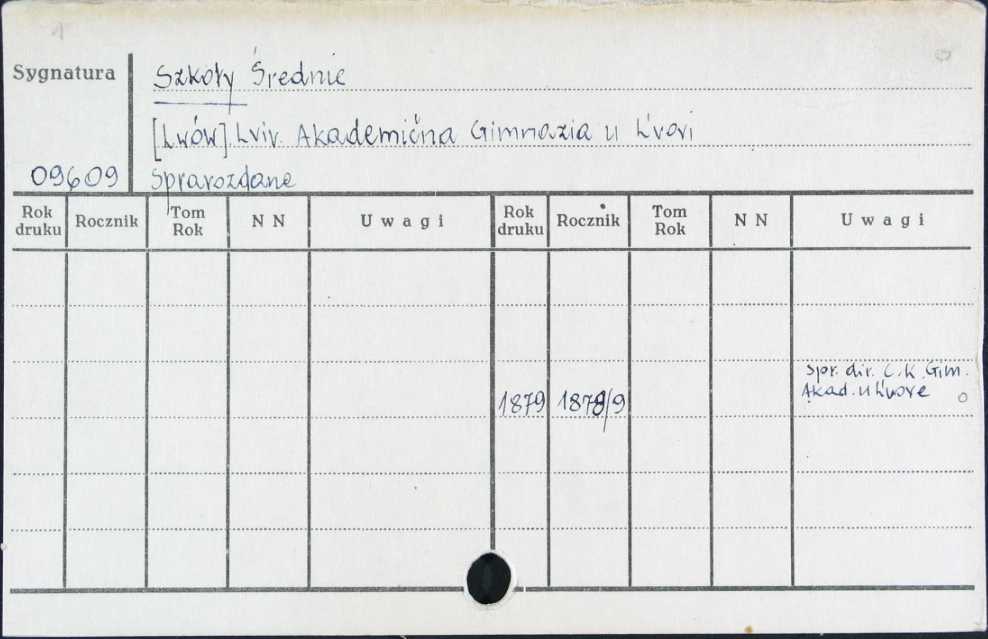 1
Sygnatura
Szkoły Średnie
[Lwów]. Lviv. Akademična Gimnazia u L'vovi
09609
Spravozdane
Rok druku Rocznik Tom Rok N N Uwagi Rok druku Rocznik Tom Rok N N Uwagi
1879 1878/9 Spr. dir. C. K. Gim.
Akad. u L'vove